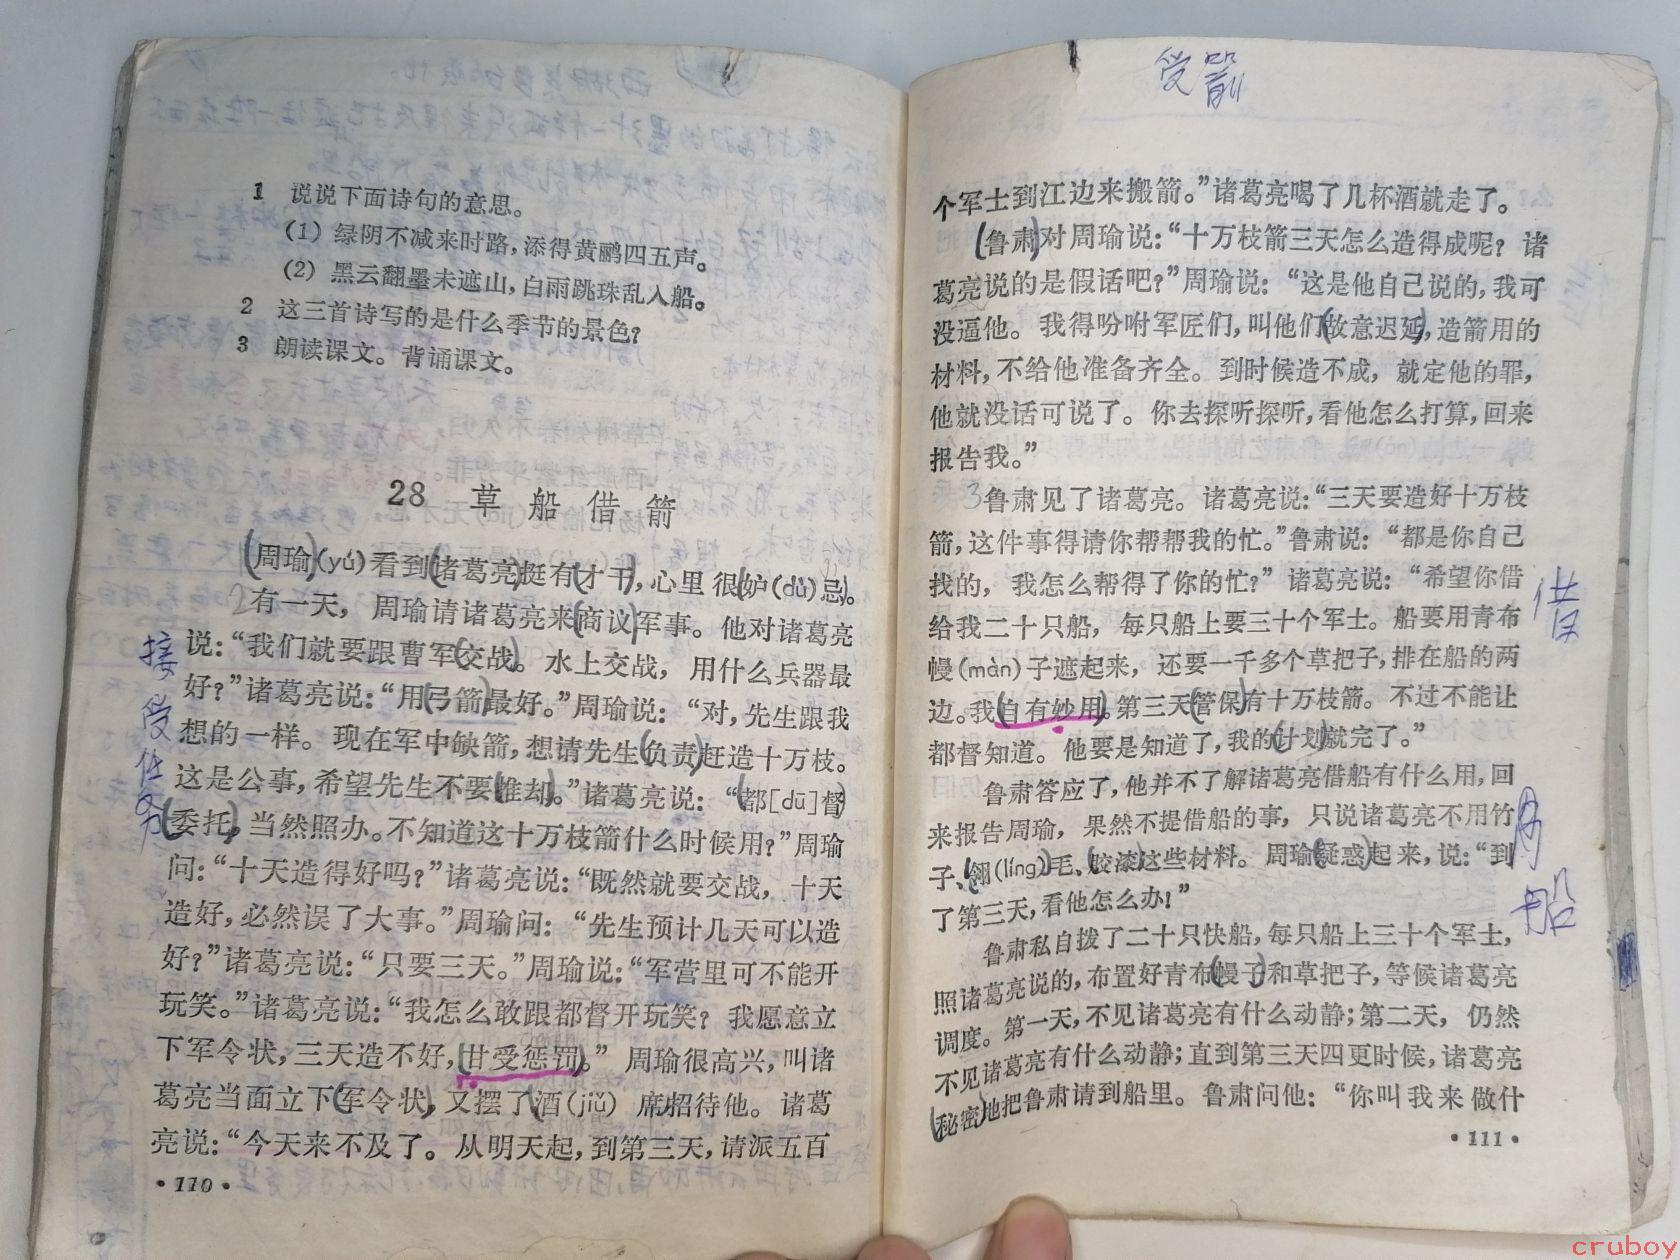 1 说说下面诗句的意思。
(1) 绿阴不减来时路,添得黄鹂四五声。
(2) 黑云翻墨未遮山,白雨跳珠乱入船。
2 这三首诗写的是什么季节的景色?
3 朗读课文。背诵课文。
28 草船借箭
周瑜(yú)看到诸葛亮挺有才干,心里很妒(dù)忌。
2有一天,周瑜请诸葛亮来商议军事。他对诸葛亮
说:“我们就要跟曹军交战。水上交战,用什么兵器最
好?”诸葛亮说:“用弓箭最好。”周瑜说:“对,先生跟我
想的一样。现在军中缺箭,想请先生负责赶造十万枝。
这是公事,希望先生不要推却。”诸葛亮说:“都[dū]督
委托,当然照办。不知道这十万枝箭什么时候用?”周瑜
问:“十天造得好吗?”诸葛亮说:“既然就要交战,十天
造好,必然误了大事。”周瑜问:“先生预计几天可以造
好?”诸葛亮说:“只要三天。”周瑜说:“军营里可不能开
玩笑。”诸葛亮说:“我怎么敢跟都督开玩笑?我愿意立
下军令状,三天造不好,甘受惩罚。”周瑜很高兴,叫诸
葛亮当面立下军令状,又摆了酒(jiǔ)席招待他。诸葛
亮说:“今天来不及了。从明天起,到第三天,请派五百
·110·
接受任务
受箭
个军士到江边来搬箭。”诸葛亮喝了几杯酒就走了。
鲁肃对周瑜说:“十万枝箭三天怎么造得成呢?诸
葛亮说的是假话吧?”周瑜说:“这是他自己说的,我可
没逼他。我得吩咐军匠们,叫他们故意迟延,造箭用的
材料,不给他准备齐全。到时候造不成,就定他的罪,
他就没话可说了。你去探听探听,看他怎么打算,回来
报告我。”
3鲁肃见了诸葛亮。诸葛亮说:“三天要造好十万枝
箭,这件事得请你帮帮我的忙。”鲁肃说:“都是你自己
找的,我怎么帮得了你的忙?”诸葛亮说:“希望你借
给我二十只船,每只船上要三十个军士。船要用青布
幔(màn)子遮起来,还要一千多个草把子,排在船的两
边。我自有妙用。第三天管保有十万枝箭。不过不能让
都督知道。他要是知道了,我的计划就完了。”
鲁肃答应了,他并不了解诸葛亮借船有什么用,回
来报告周瑜,果然不提借船的事,只说诸葛亮不用竹
子、翎(líng)毛、胶漆这些材料。周瑜疑惑起来,说:“到
了第三天,看他怎么办!”
鲁肃私自拨了二十只快船,每只船上三十个军士,
照诸葛亮说的,布置好青布幔子和草把子,等候诸葛亮
调度。第一天,不见诸葛亮有什么动静;第二天,仍然
不见诸葛亮有什么动静;直到第三天四更时候,诸葛亮
秘密地把鲁肃请到船里。鲁肃问他:“你叫我来做什
·111·
借
船
cruboy